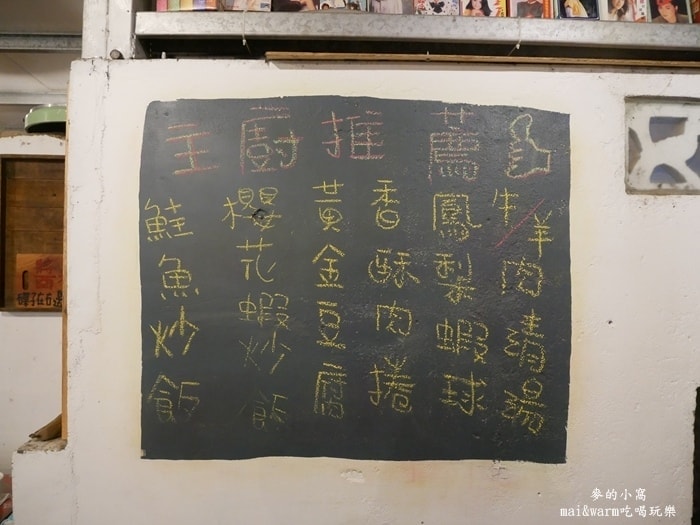 主廚推薦
牛/羊肉清湯
鳳梨蝦球
香酥肉捲
黃金豆腐
櫻花蝦炒飯
鮭魚炒飯
麥的小窩
mai&warm吃喝玩樂